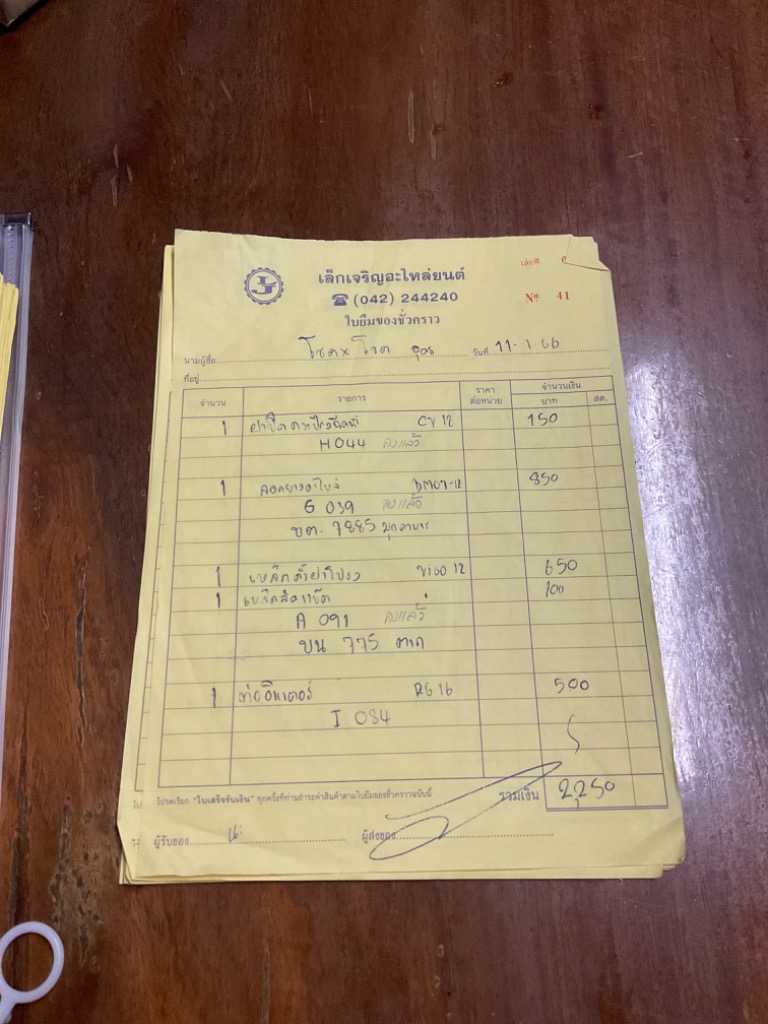 เล็กเจริญอะไหล่ยนต์
เล่มที่
☎ (042) 244240
№ 41
ใบยืมของชั่วคราว
นามผู้ซื้อ โชค x โชค อุดร วันที่ 11.1.66
ที่อยู่
จำนวน รายการ ราคาต่อหน่วย จำนวนเงิน
บาท สต.
1 CV 12 150
H044 ลงแล้ว
1 DM07-12 850
G 039 ลงแล้ว
ขต. 7885 มุกดาหาร
1 เหล็กค้ำฝาโปรง VIGO 12 650
1 100
A 091 ลงแล้ว
ขน 775 ตาก
1 ท่ออินเตอร์ RG 16 500
I 084
โปรดเรียก "ใบเสร็จรับเงิน" ทุกครั้งที่ท่านชำระค่าสินค้าตามใบยืมของชั่วคราวฉบับนี้
รวมเงิน 2,250
ผู้รับของ ผู้ส่งของ